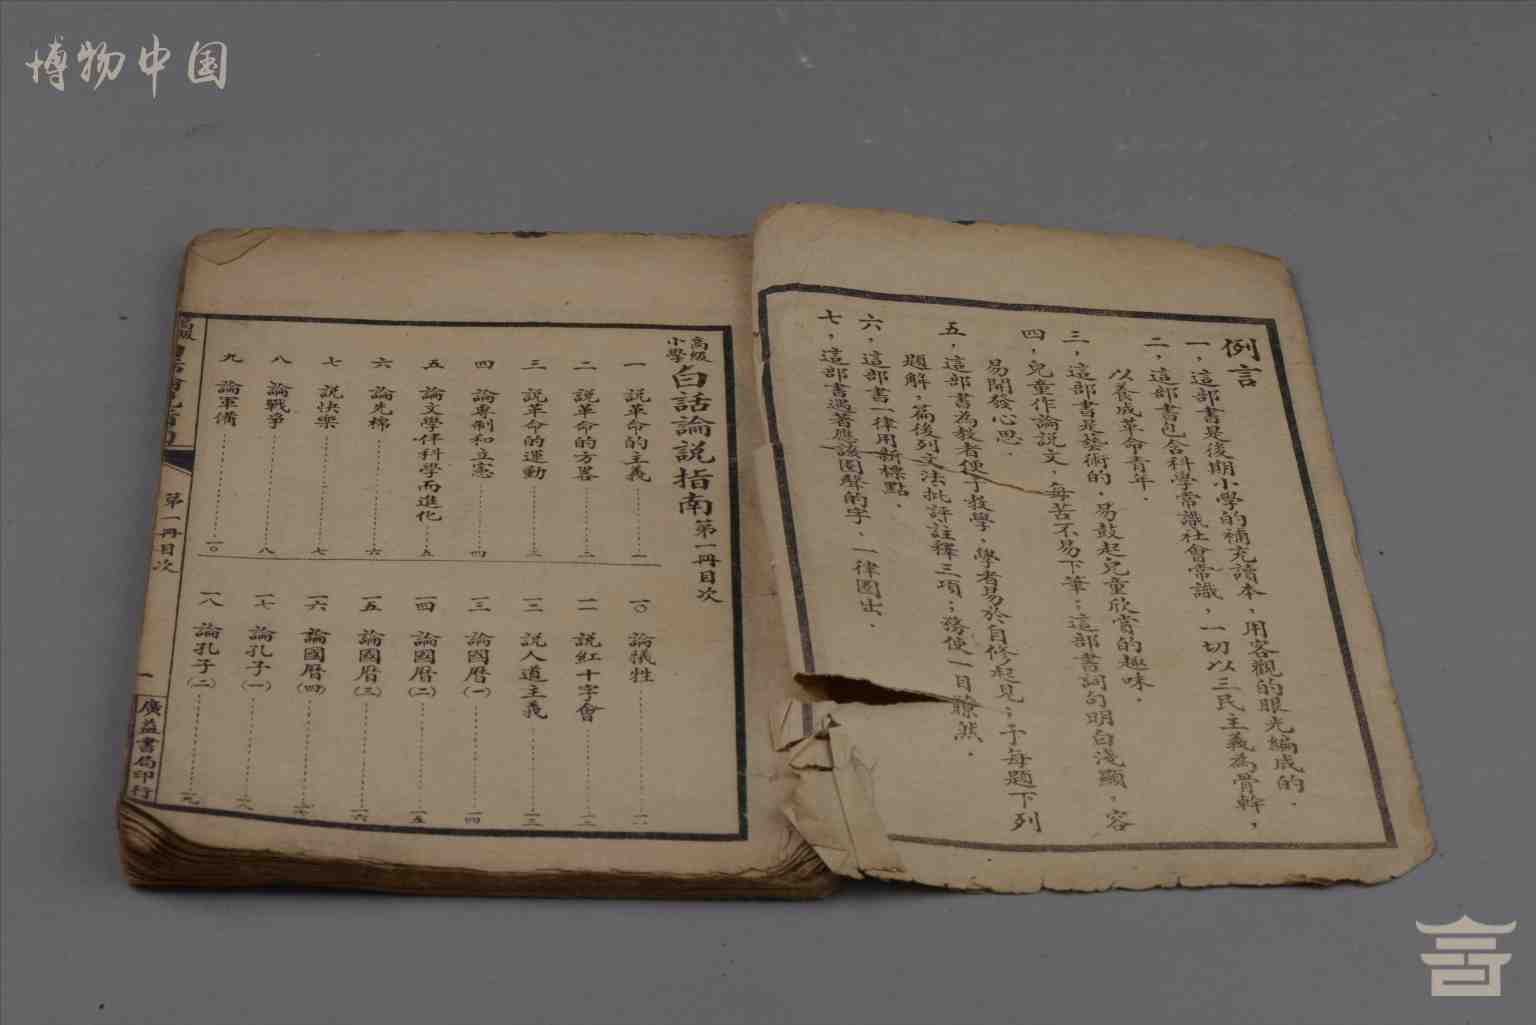 博物中国
例言
一，這部書是後期小學的補充讀本，用客觀的眼光編成的．
二，這部書包含科學常識社會常識，一切以三民主義為骨幹，
以養成革命青年．
三，這部書是藝術的．易鼓起兒童欣賞的趣味．
四，兒童作論說文，每苦不易下筆；這部書詞句明白淺顯，容
易開發心思．
五，這部書為教者便于教學，學者易於自修起見；于每題下列
題解，篇後列文法批評註釋三項；務使一目瞭然．
六，這部書一律用新標點．
七，這部書遇著應該圈聲的字，一律圈出．
高級
小學
白話論說指南 第一冊目次
一 說革命的主義 一
二 說革命的方畧 二
三 說革命的運動 三
四 論專制和立憲 四
五 論文學伴科學而進化 五
六 論先棉 六
七 說快樂 七
八 論戰爭 八
九 論軍備 一〇
一〇 論犧牲 一一
一一 說紅十字會 一二
一二 說人道主義 一三
一三 論國曆(一) 一四
一四 論國曆(二) 一五
一五 論國曆(三) 一六
一六 論國曆(四) 一七
一七 論孔子(一) 一八
一八 論孔子(二) 一九
高級
第一冊目次
一
廣益書局印行